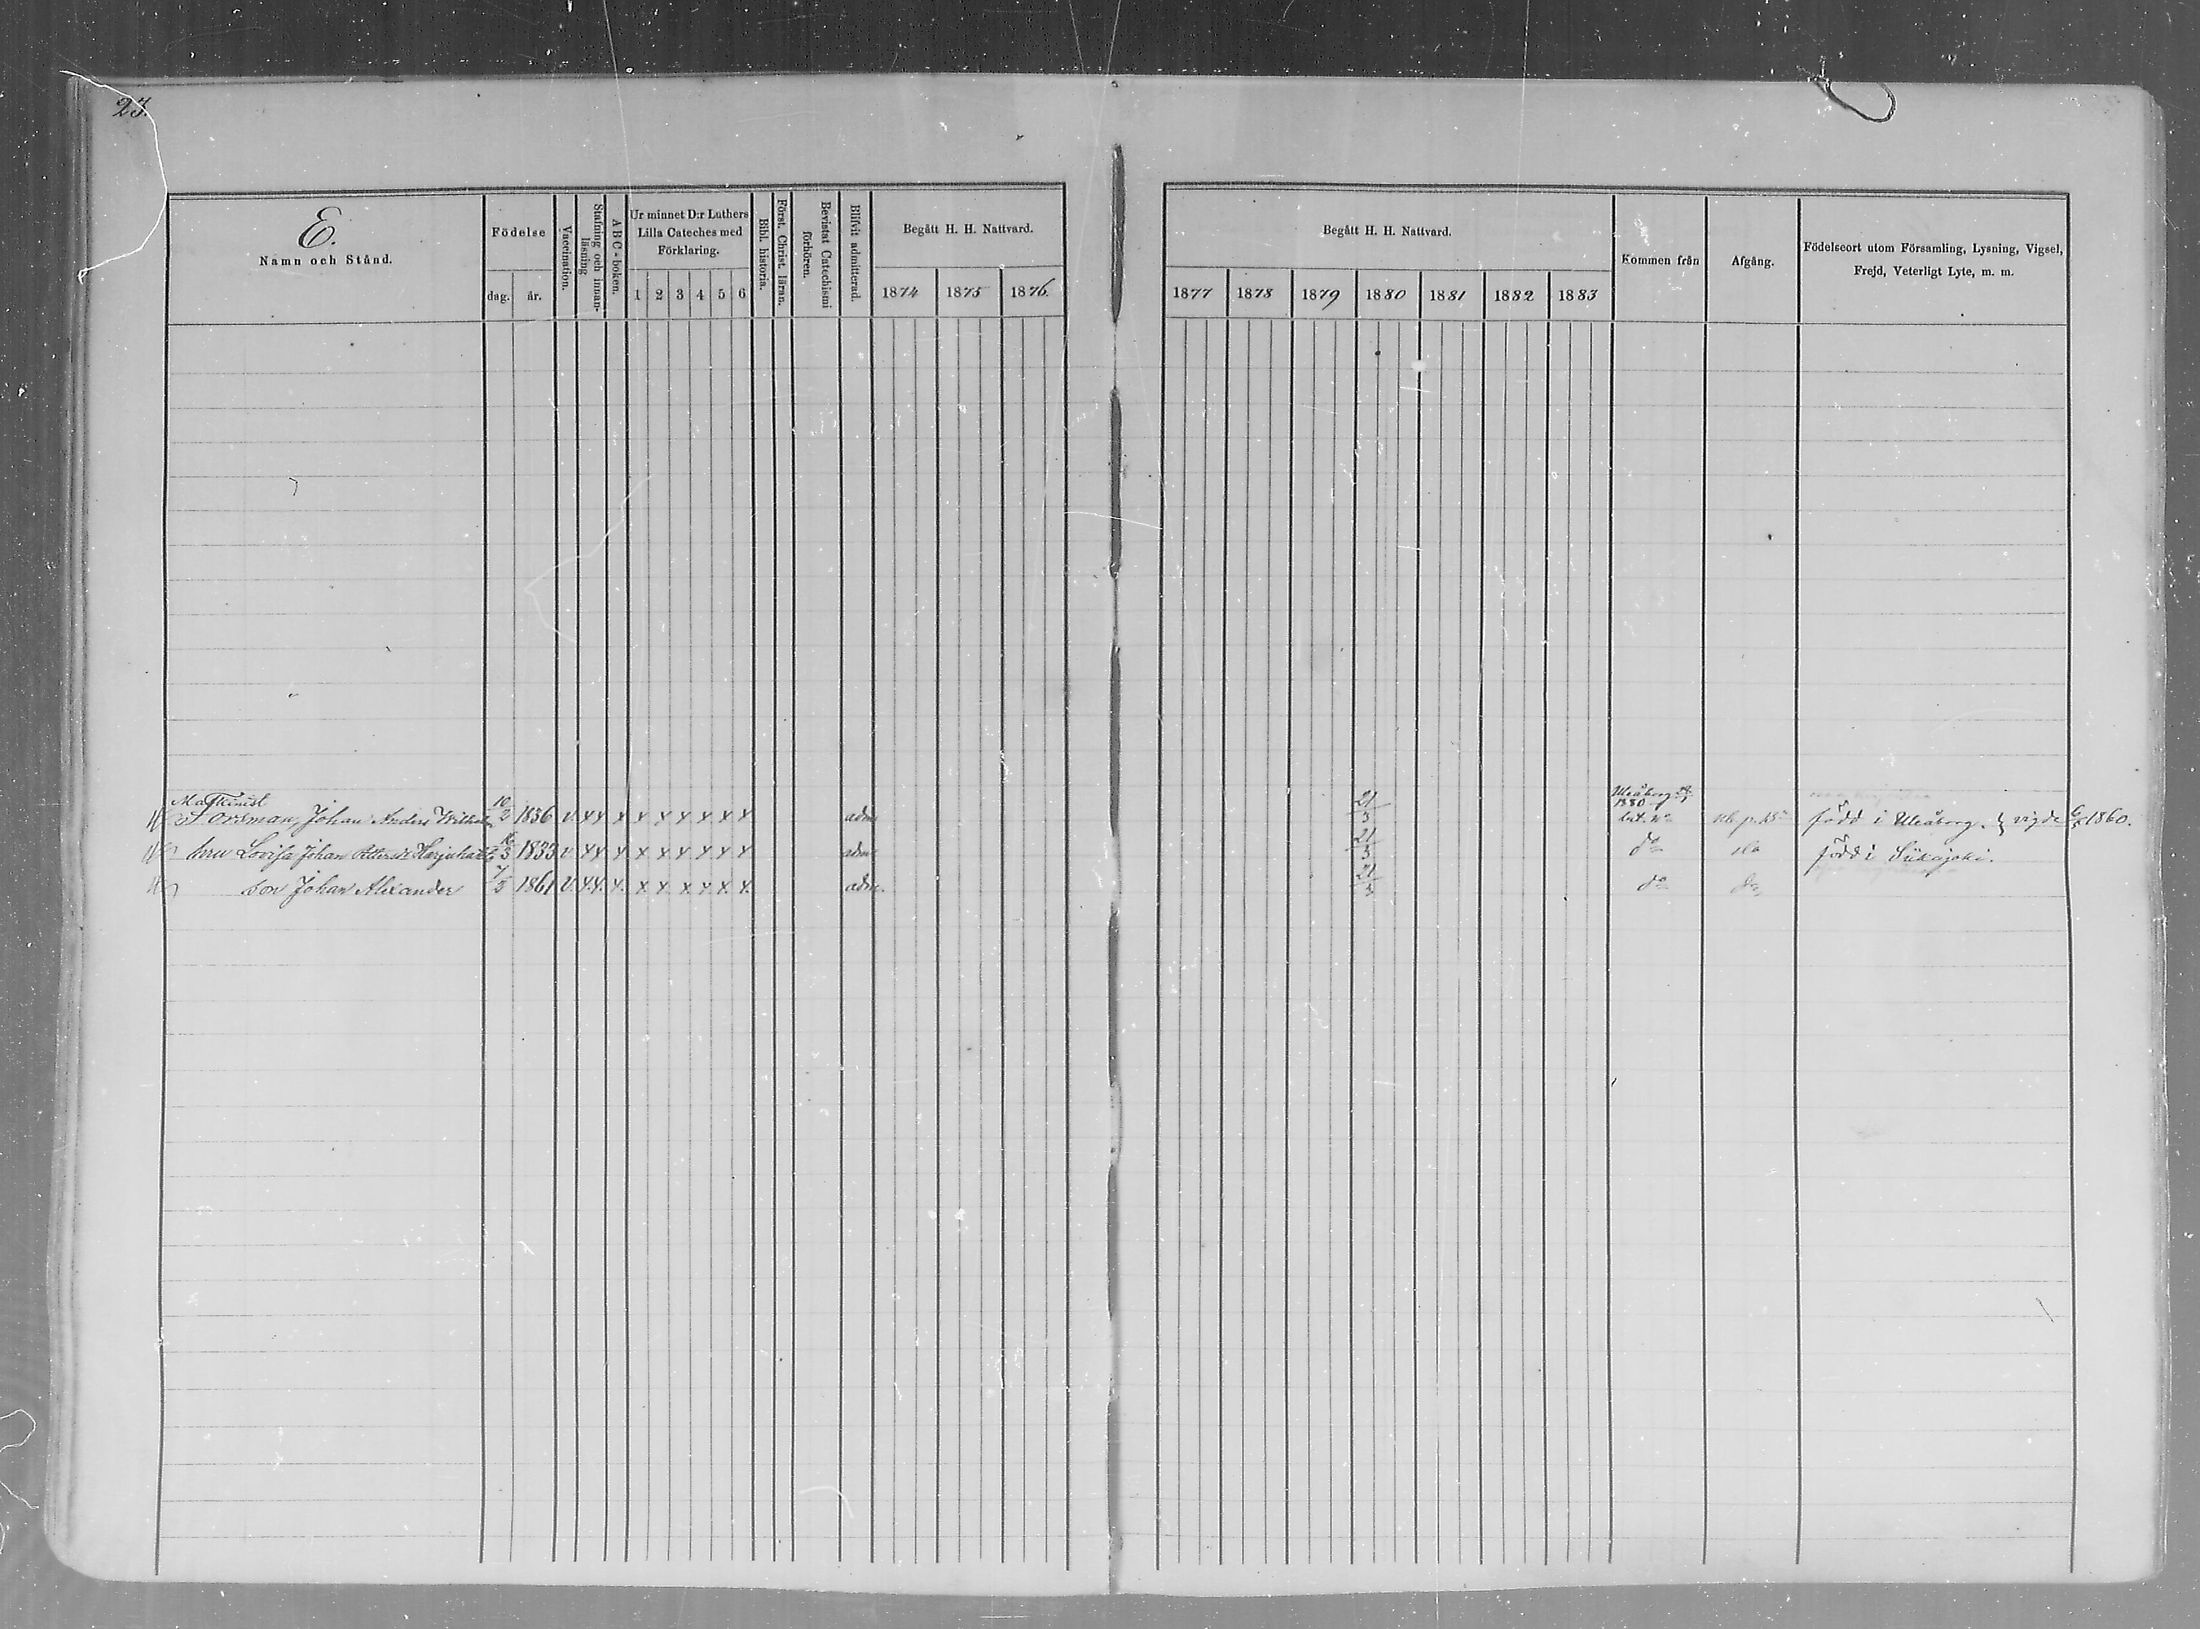 23.
E.
Namn och Stånd.
Födelse
dag. år.
Vaccination.
Stafning och innan-
läsning
A B C-boken.
Ur minnet D:r Luthers
Lilla Cateches med
Förklaring.
1 2 3 4 5 6
Bibl. historia.
Först. Christ. läran.
Bevistat Catechismi
förhören.
Blifvit admitterad.
Begått H. H. Nattvard.
1874 1875 1876.
Begått H. H. Nattvard.
1877 1878 1879 1880 1881 1882 1883
Kommen från
Afgång.
Födelseort utom Församling, Lysning, Vigsel,
Frejd, Veterligt Lyte, m. m.
Maskinist
Forsman, Johan Anders Wilhelm 10/2 1836 v. adm. 21/3 Uleåborg 1880 född i Uleåborg. vigde 1860.
hru Lovisa Johan 1833 v adm. 21/3 do do född i Siikajoki.
son Johan Alexander 7/5 1861 v. adm. 21/3 do do